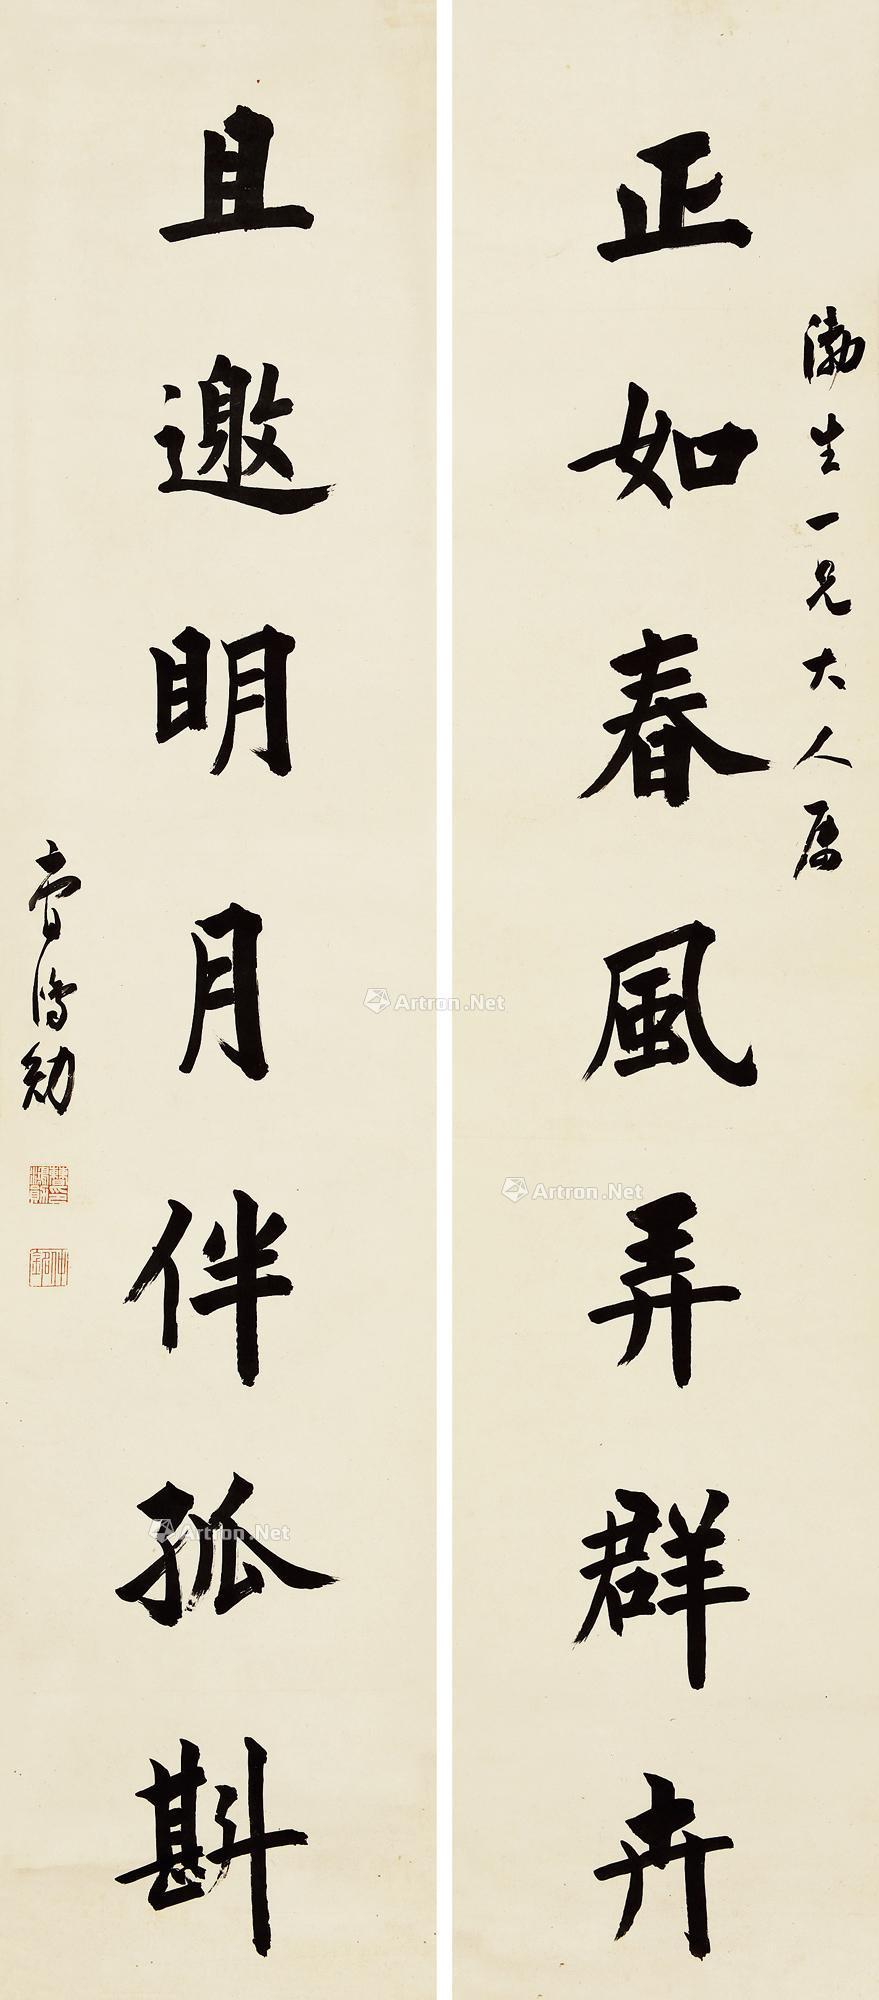 渤生一兄大人属
正如春風弄群卉
且邀明月伴孤斟
曹鴻勛
Artron.Net
Artron.Net
Artron.Net